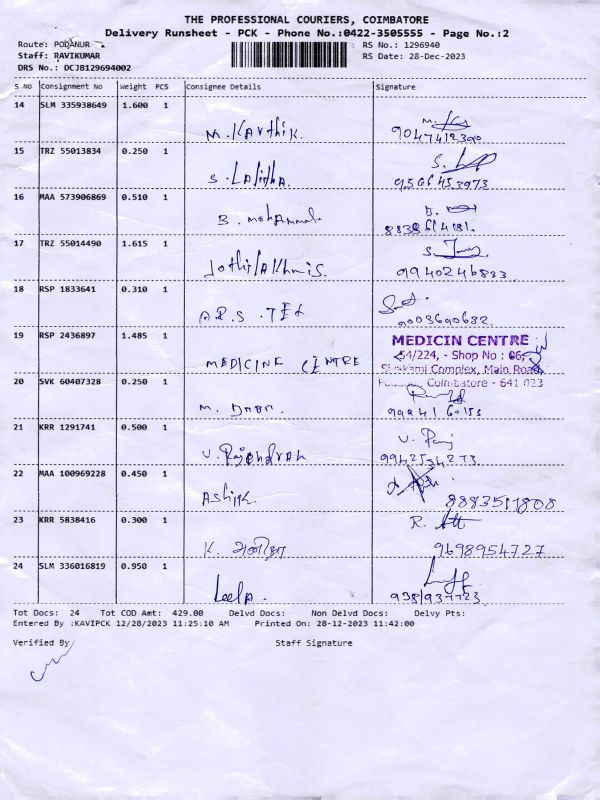 THE PROFESSIONAL COURIERS, COIMBATORE
Delivery Runsheet - PCK - Phone No.:0422-3505555 - Page No.:2
Route: PODANUR
RS No.: 1296940
Staff: RAVIKUMAR
RS Date: 28-Dec-2023
DRS No.: DCJB129694002
S NO Consignment No Weight PCS Consignee Details Signature
14 SLM 335938649 1.600 1
M. Karthik. 9047412390
15 TRZ 55013834 0.250 1
S. Lalitha. 9566453973
16 MAA 573906869 0.510 1
B. mohammad.
17 TRZ 55014490 1.615 1
9940246833.
18 RSP 1833641 0.310 1
A.R.S. TEX 9003690632.
19 RSP 2436897 1.485 1
MEDICINE CENTRE
MEDICIN CENTRE
54/224, - Shop No : 06,
Complex, Main Road
Coimbatore - 641 023
20 SVK 60407328 0.250 1
M. 9994160153
21 KRR 1291741 0.500 1
V. Rajendran 9942534273.
22 MAA 100969228 0.450 1
Ashik. 8883511808
23 KRR 5838416 0.300 1
K. 9698954727
24 SLM 336016819 0.950 1
Leela.
Tot Docs: 24 Tot COD Amt: 429.00 Delvd Docs: Non Delvd Docs: Delvy Pts:
Entered By :KAVIPCK 12/28/2023 11:25:10 AM Printed On: 28-12-2023 11:42:00
Verified By Staff Signature